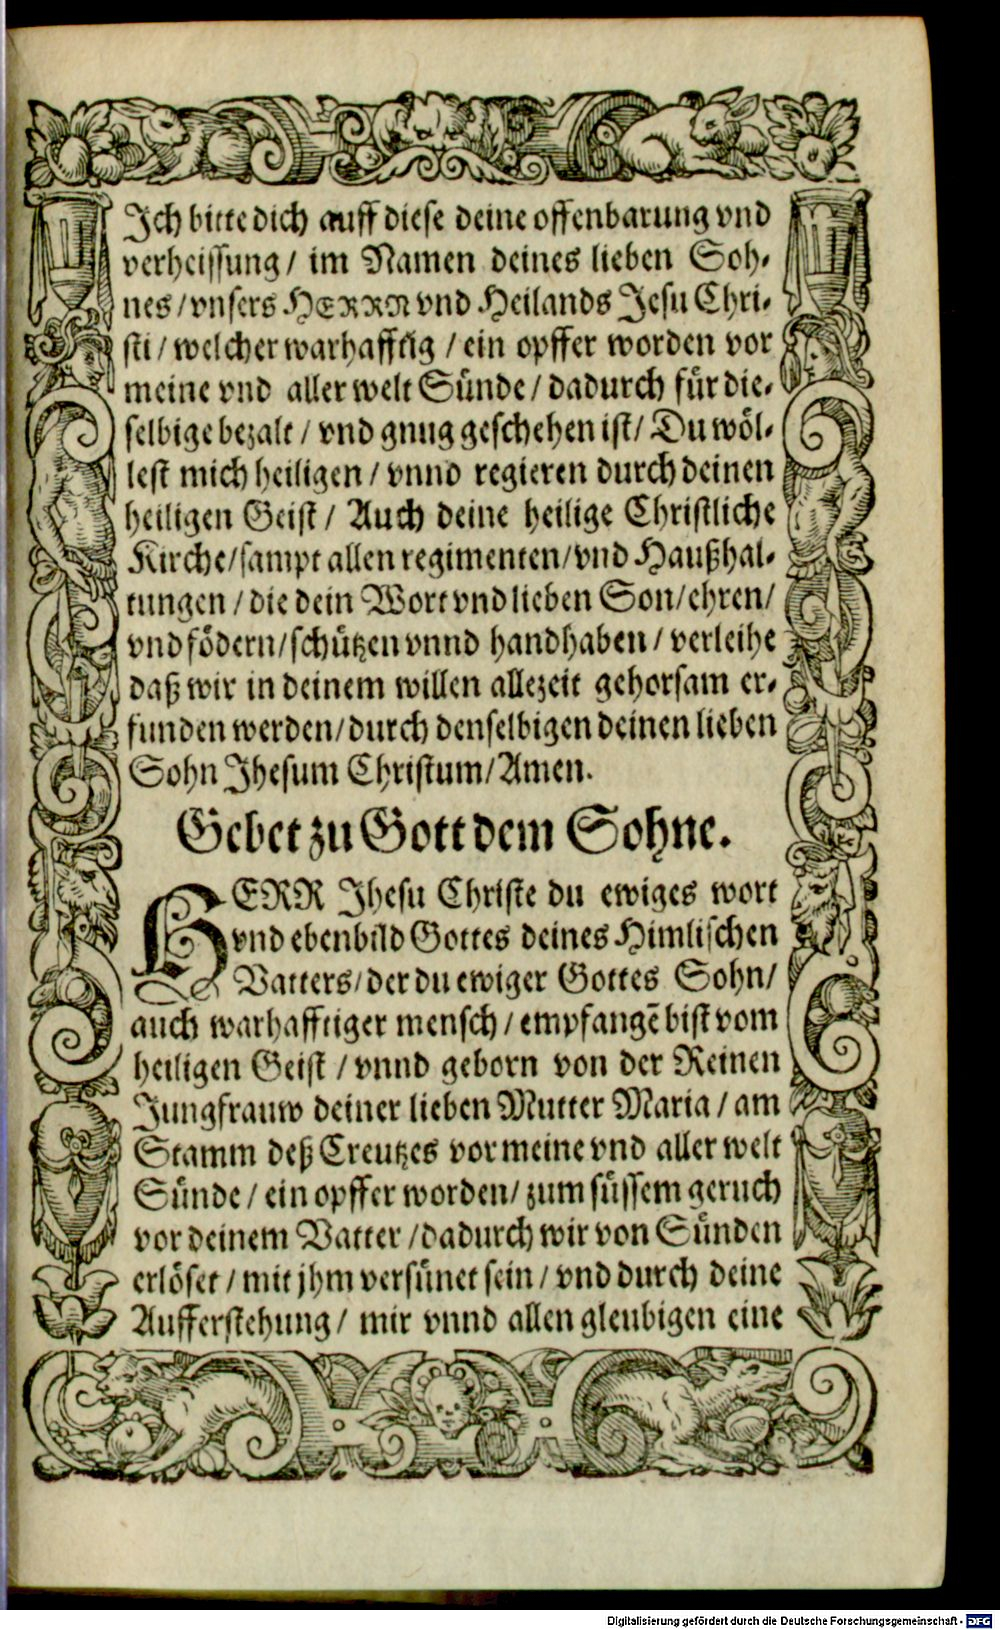 Ich bitte dich auff diese deine offenbarung vnd
verheissung / im Namen deines lieben Soh-
nes / vnsers HERRN vnd Heilands Jesu Chri-
sti / welcher warhafftig / ein opffer worden vor
meine vnd aller welt Sünde / dadurch für die-
selbige bezalt / vnd gnug geschehen ist / Du wöl-
lest mich heiligen / vnnd regieren durch deinen
heiligen Geist / Auch deine heilige Christliche
Kirche / sampt allen regimenten / vnd Haußhal-
tungen / die dein Wort vnd lieben Son / ehren /
vnd födern / schützen vnnd handhaben / verleihe
daß wir in deinem willen allezeit gehorsam er-
funden werden / durch denselbigen deinen lieben
Sohn Jhesum Christum / Amen.
Gebet zu Gott dem Sohne.
HERR Jhesu Christe du ewiges wort
vnd ebenbild Gottes deines Himlischen
Vatters / der du ewiger Gottes Sohn /
auch warhafftiger mensch / empfangẽ bist vom
heiligen Geist / vnnd geborn von der Reinen
Jungfrauw deiner lieben Mutter Maria / am
Stamm deß Creutzes vor meine vnd aller welt
Sünde / ein opffer worden / zum süssem geruch
vor deinem Vatter / dadurch wir von Sünden
erlöset / mit jhm versünet sein / vnd durch deine
Aufferstehung / mir vnnd allen gleubigen eine
Digitalisierung gefördert durch die Deutsche Forschungsgemeinschaft - DFG